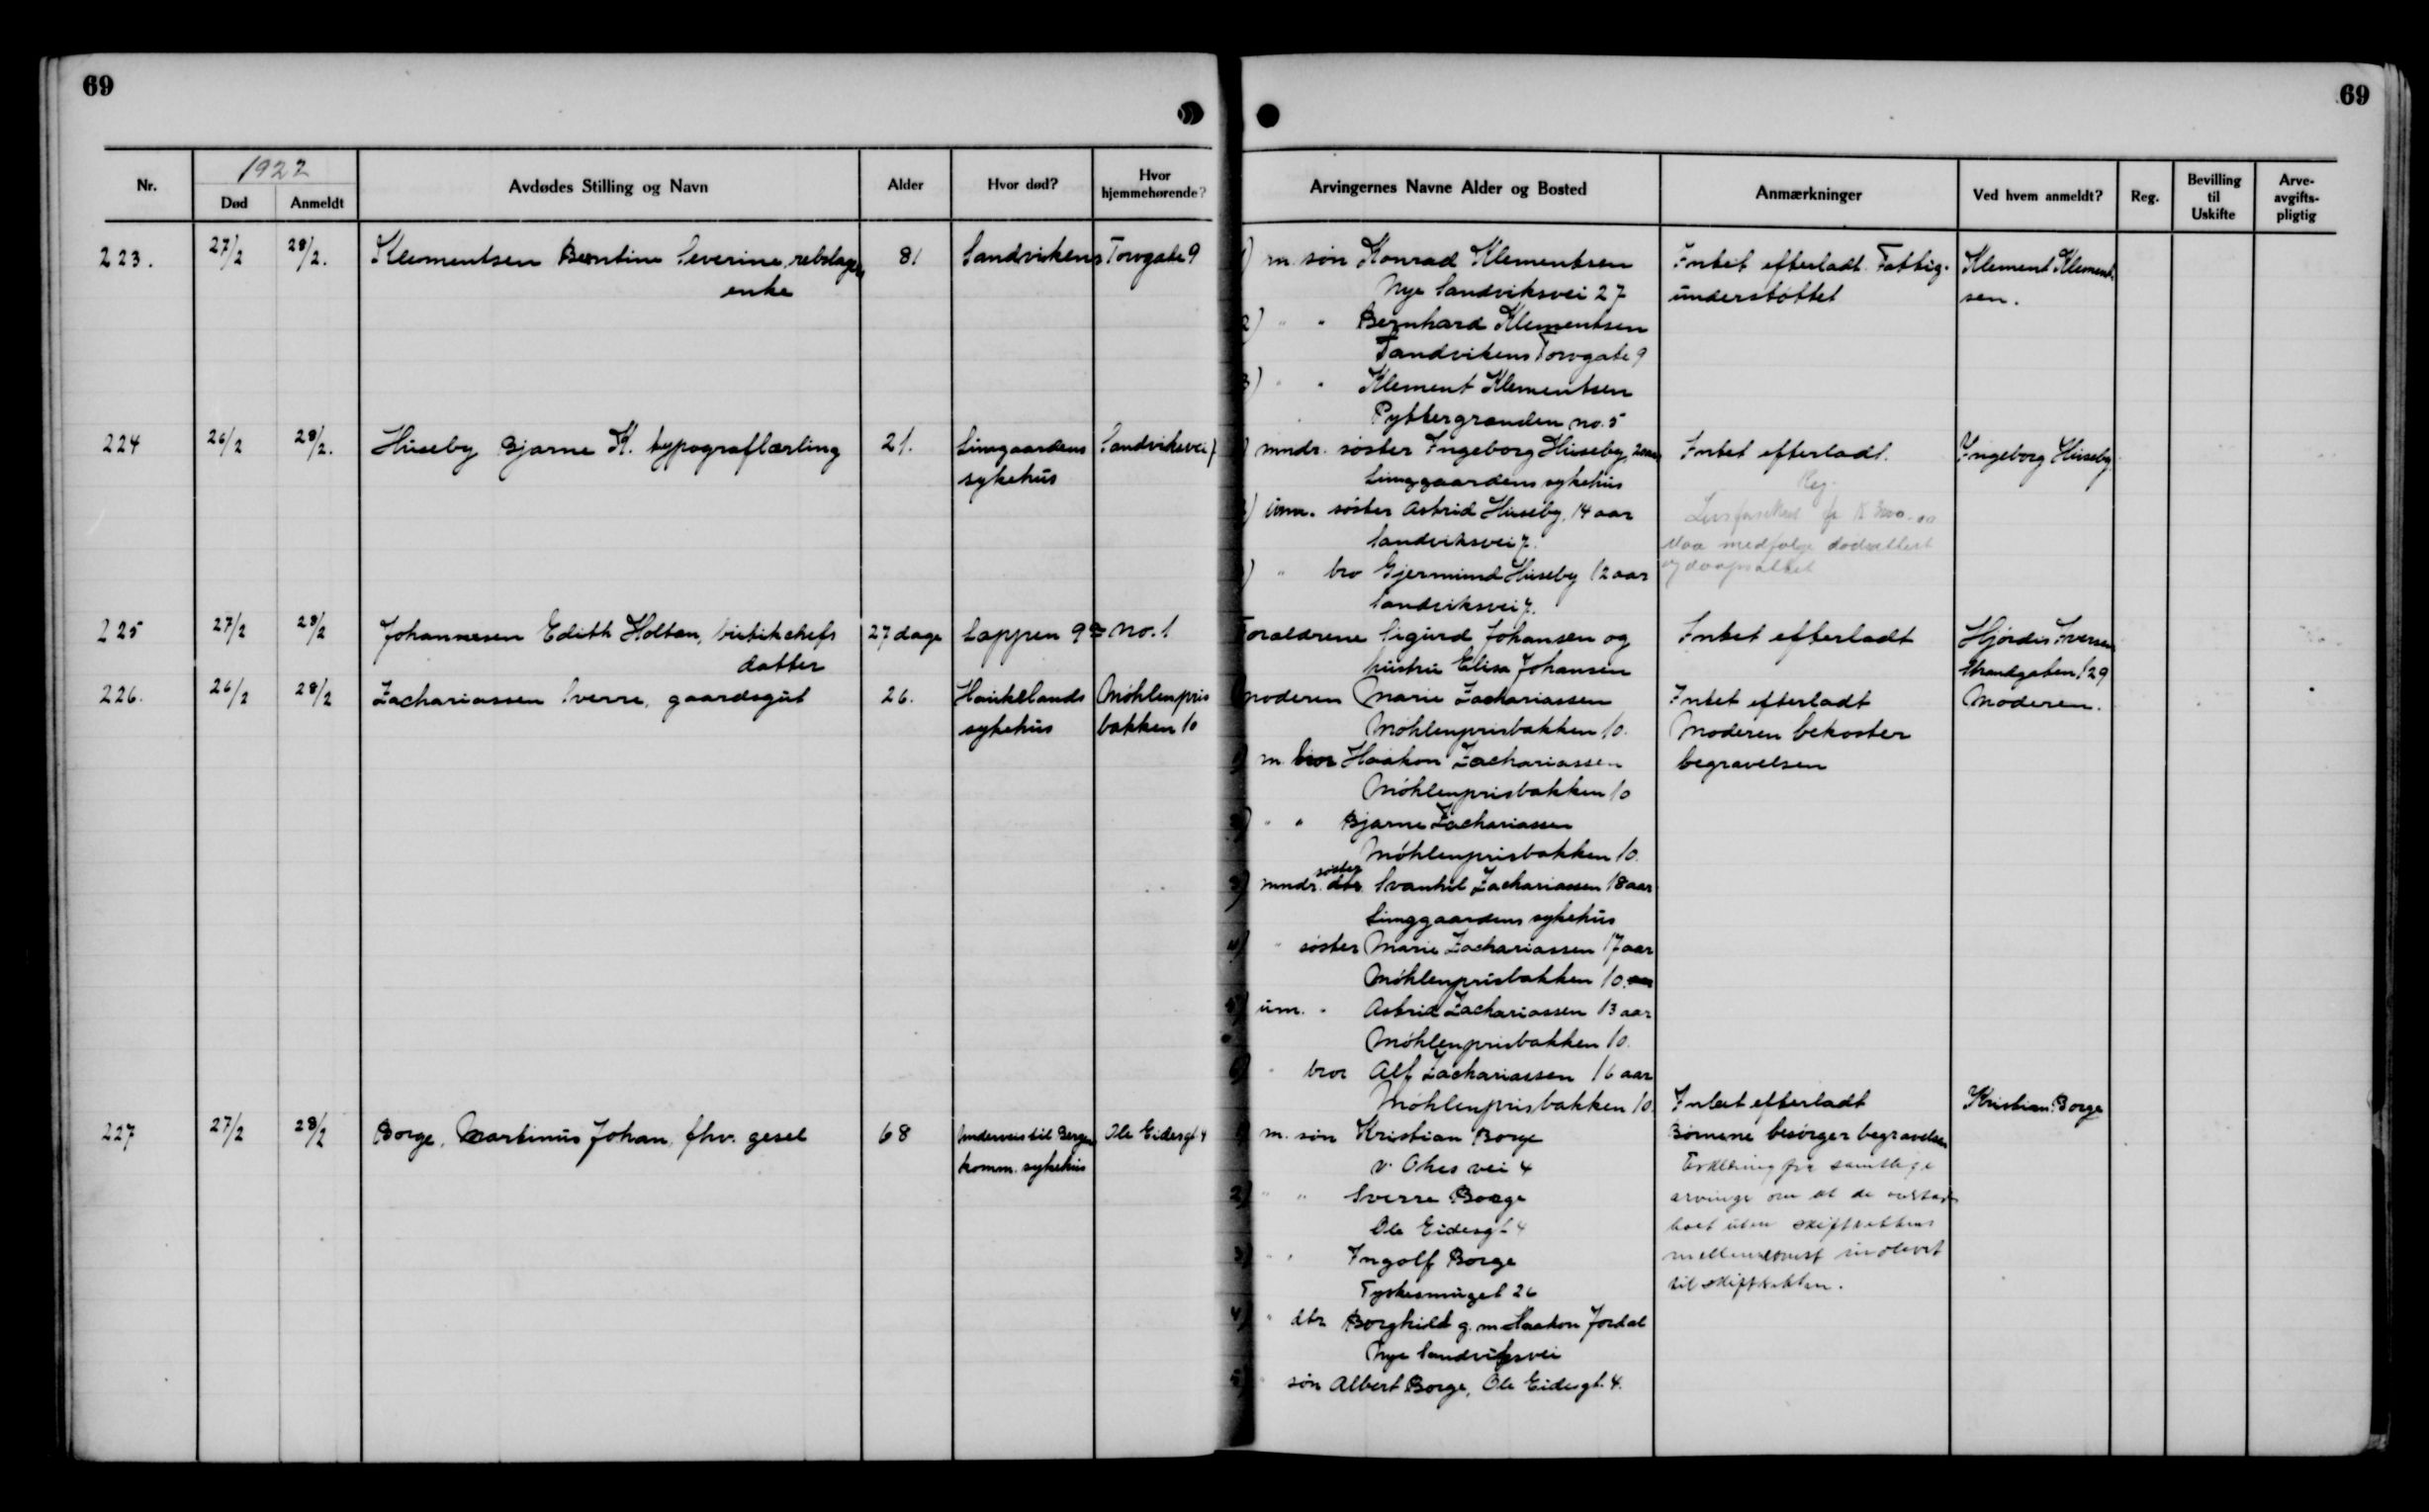 69
69
1922
Nr.
Død
Anmeldt
Avdødes Stilling og Navn
Alder
Hvor død?
Hvor hjemmehørende?
Arvingernes Navne Alder og Bosted
Anmærkninger
Ved hvem anmeldt?
Reg.
Bevilling til Uskifte
Arve-avgifts-pligtig
223. 27/2 28/2. Klementsen Berntine Severine, rebslager 81 Sandvikens Torvgate 9
enke
1) m. søn Konrad Klementsen
Nye Sandviksvei 27
2) " " Bernhard Klementsen
Sandvikens Torvgate 9
3) " " Klement Klementsen
Pyttergranden no. 5
Intet efterladt. Fattig-
understøttet
Klement Klement-
sen.
224 26/2 28/2. Huseby Bjarne K. typograflærling 21. Lungaardens Sandviksvei 7
sykehus
1) mndr. søster Ingeborg Huseby, 20 aar
Lunggaardens sykehus
2) umn. søster Astrid Huseby, 14 aar
Sandviksvei 7.
3) " bro Gjermund Huseby 12 aar
Sandviksvei 7.
Intet efterladt.
Reg.
Maa medfølge dødsattest
og daapsattest
Ingeborg Huseby
225 27/2 28/2 Johannesen Edith Holtan, butikchefs 27 dage Lappen 9de no. 1
datter
Forældrene Sigurd Johansen og
hustru Elisa Johansen
Intet efterladt
Hjørdis Iversen
Strandgaten 129
226. 26/2 28/2 Zachariassen Sverre, gaardsgut 26. Haukelands Møhlenpris
sykehus bakken 10
Moderen Marie Zachariassen
Møhlenprisbakken 10.
1) m. bror Haakon Zachariassen
Møhlenprisbakken 10
2) " " Bjarne Zachariassen
Møhlenprisbakken 10.
3) mndr. dtr. søster Svanhil Zachariassen 18 aar
Lunggaardens sykehus
4) " søster Marie Zachariassen 17 aar
Møhlenprisbakken 10. aar
5) um. " Astrid Zachariassen 13 aar
Møhlenprisbakken 10.
6) " bror Alf Zachariassen 16 aar
Møhlenprisbakken 10.
Intet efterladt
Moderen bekoster
begravelsen
Moderen.
227 27/2 28/2 Borge, Martinus Johan, fhv. gesel 68 Underveis til Bergens Ole Eidesgt 4
komm. sykehus
1) m. søn Kristian Borge
v. Ohes vei 4
2) " " Sverre Borge
Ole Eidesgt 4
3) " " Ingolf Borge
Tyskesmuget 26
4) " dtr Borghild g. m. Haakon Jordal
Nye Sandviksvei
5) " søn Albert Borge, Ole Eidesgt. 4.
Intet efterladt
Børnene besørger begravelsen
Erklæring fra samtlige
arvinge om at de overtar
boet uten skifterettens
mellemkomst indlevert
til skifteretten.
Kristian Borge